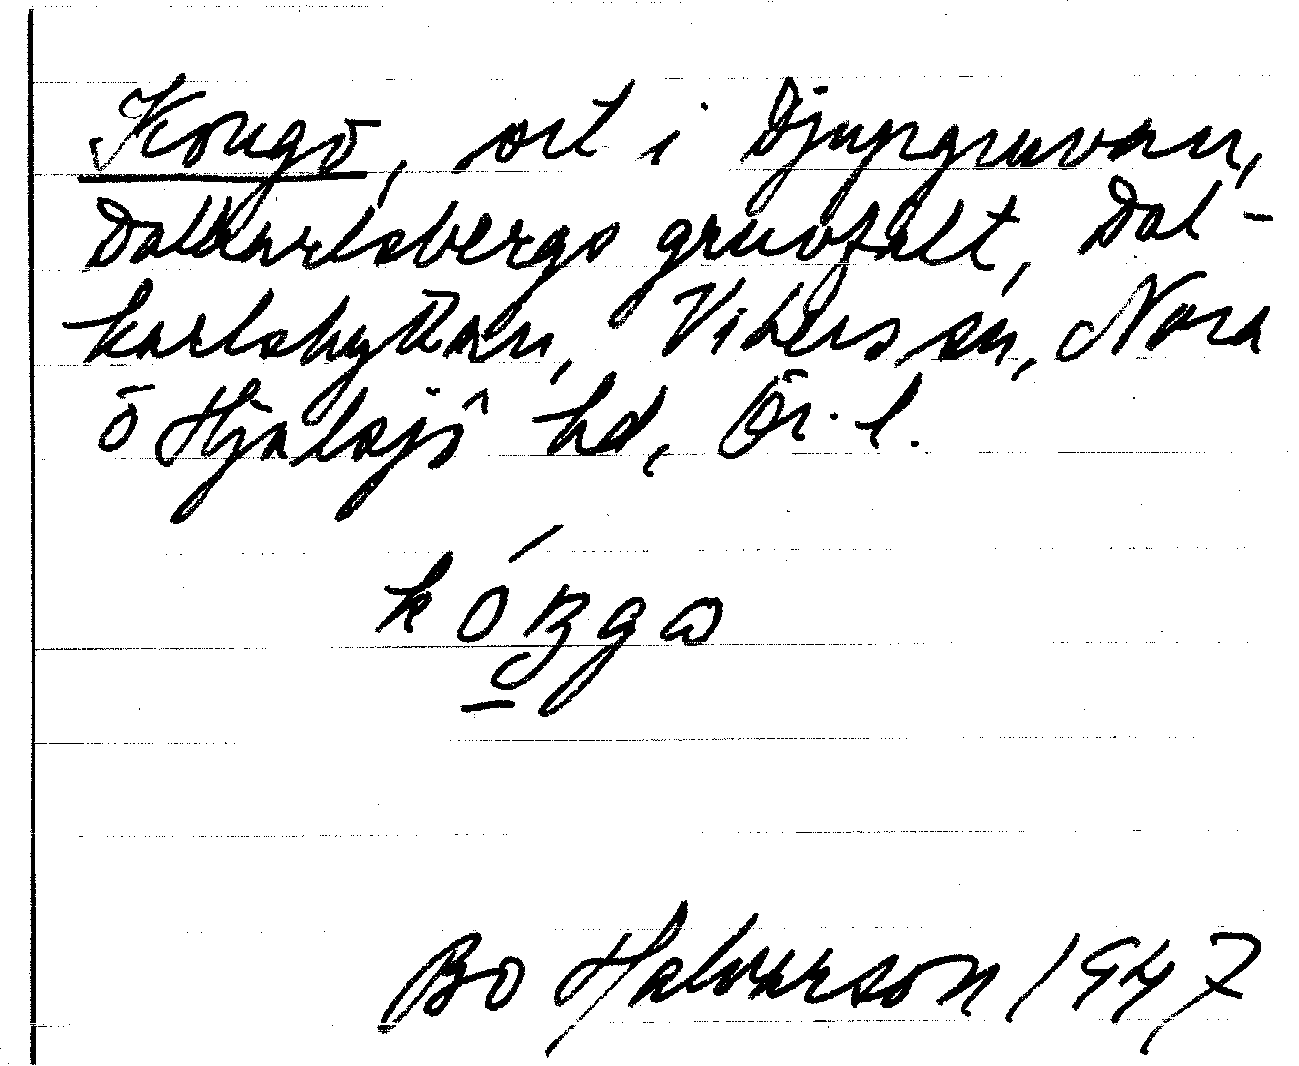 Kongo, ort i Djupgruvan,
Dalkarlsbergs gruvfält, Dal-
karlshyttan, Vikers sn, Nora
o Hjulsjö hd, Ör. l.
kóŋgo
Bo Halvarson 1947